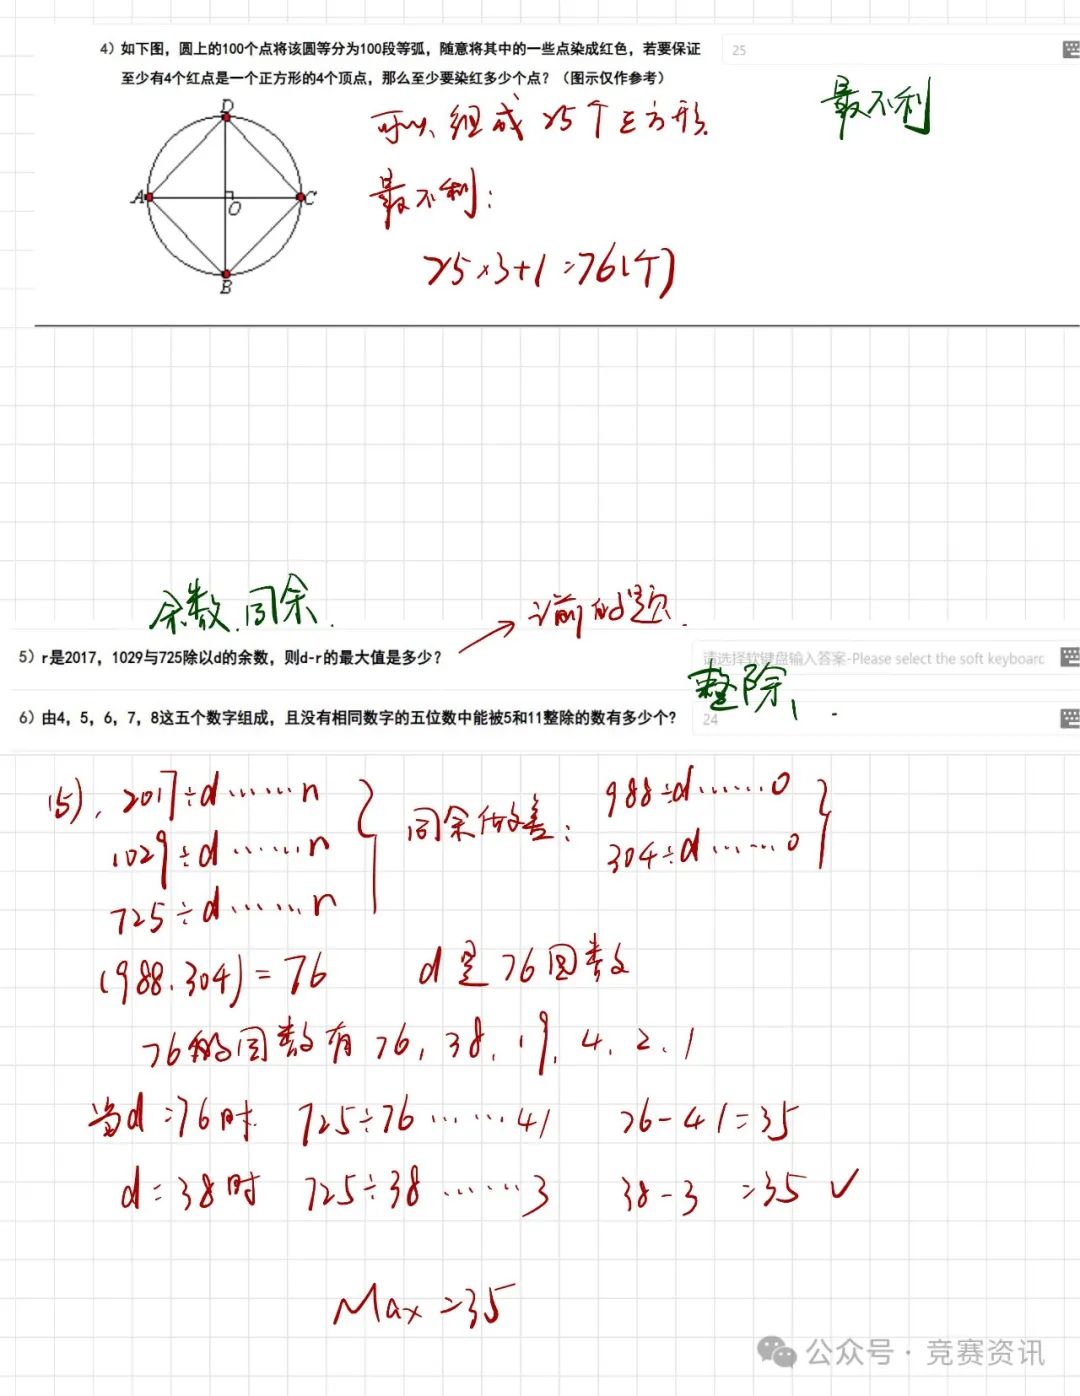 4）如下图，圆上的100个点将该圆等分为100段等弧，随意将其中的一些点染成红色，若要保证
至少有4个红点是一个正方形的4个顶点，那么至少要染红多少个点？（图示仅作参考）
25
最不利
D
A
C
O
B
可以组成25个正方形
最不利：
25×3+1=76(个)
余数、同余.
→课前的题.
5）r是2017，1029与725除以d的余数，则d-r的最大值是多少？
请选择软键盘输入答案-Please select the soft keyboard
整除、.
6）由4，5，6，7，8这五个数字组成，且没有相同数字的五位数中能被5和11整除的数有多少个？
24
(5). 2017÷d……n
1029÷d……n
725÷d……n
同余做差：
988÷d……0
304÷d……0
(988.304)=76
d是76因数
76的因数有76, 38, 19, 4, 2, 1
当d=76时 725÷76……41 76-41=35
d=38时 725÷38……3 38-3=35 ✓
Max=35
公众号·竞赛资讯